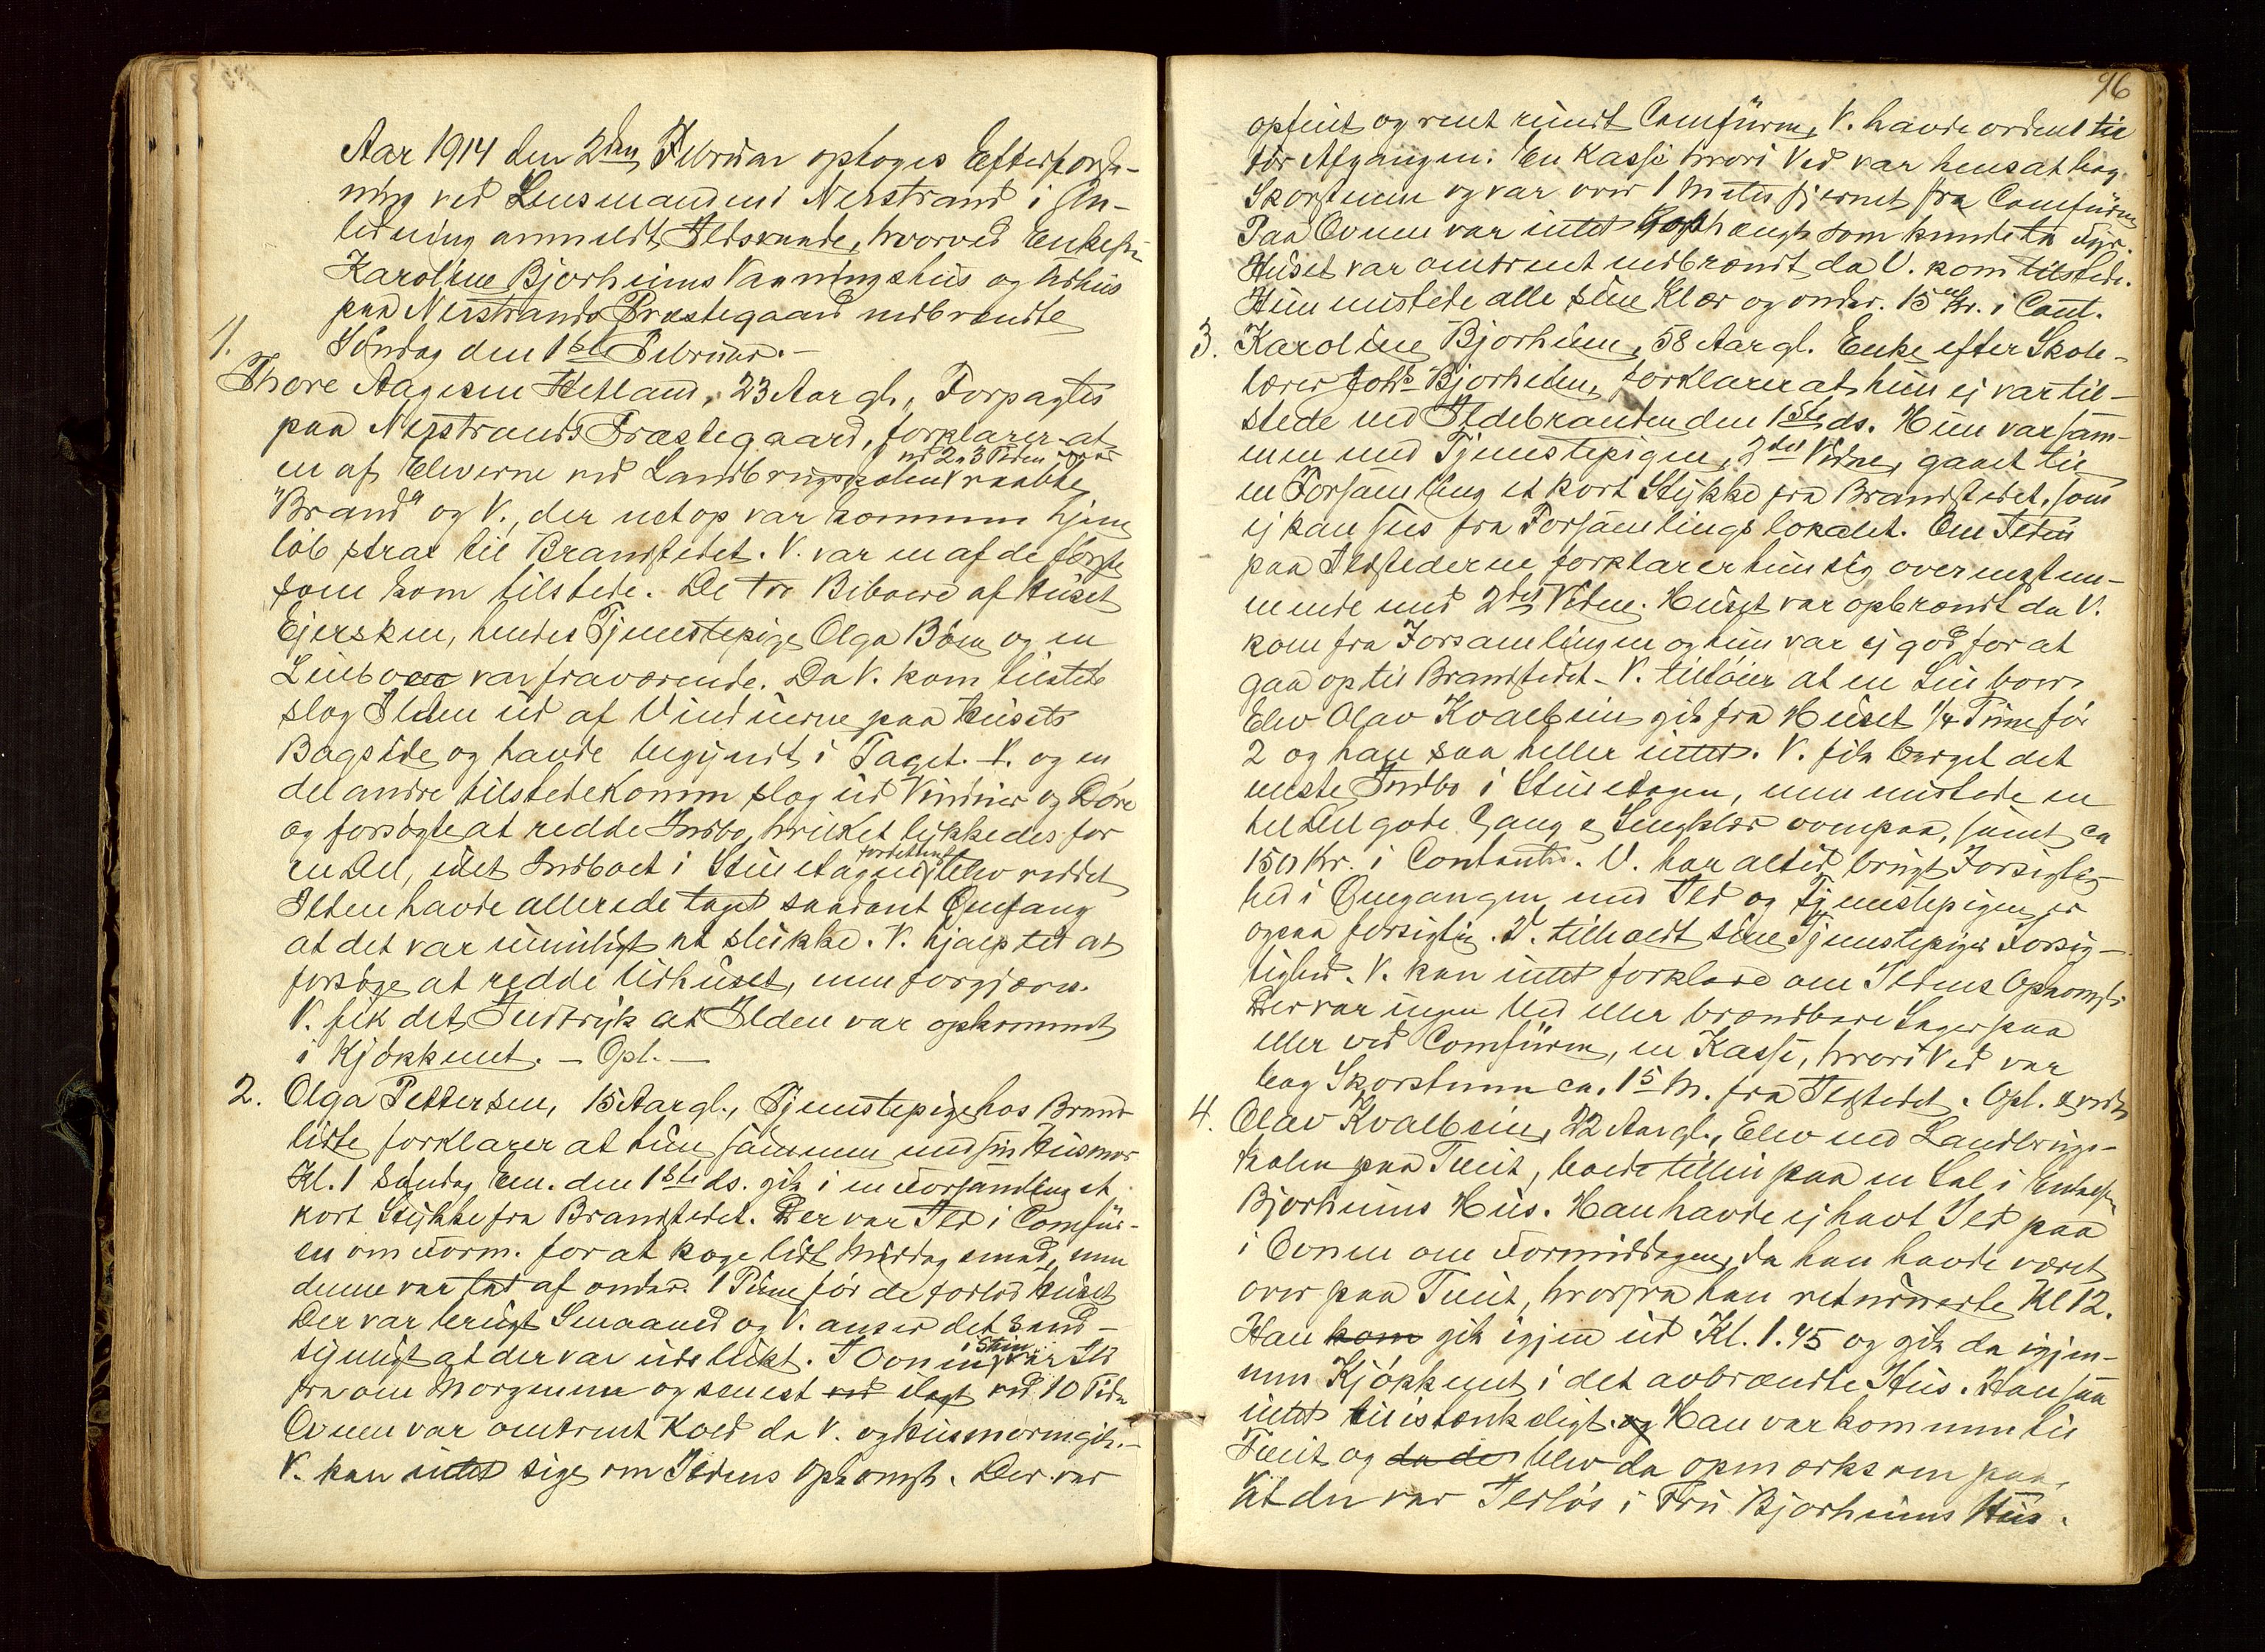 Aar 1914 den 2den Februar optoges Efterforsk-
ning ved Lensmanden i Nerstrand i An-
ledning anmeldt Ildsvaade, hvorved Enkefru
Karoline Bjorheims Vaaningshus og Udhus
paa Nerstrands Præstegaard nedbrændte
1. Søndag den 1ste Februar. -
Thore Aagesen Hetland, 23 Aar gl., Forpagter
paa Nerstrands Præstegaard, forklarer at
ved 2 a 3 Tiden
en af Eleverne ved Landbrugsskolen raabte
"Brand" og V., der netop var kommen hjem
løb strax til Brandstedet. V. var en af de første
som kom tilstede. De tre Beboere af Huset
Ejersken, hendes Tjenestepige Olga Böen og en
Leiboer var fraværende. Da V. kom tilstede
slog Ilden ud af Vinduerne paa Husets
Bagside og havde begyndt i Taget. V. og en
del andre tilstedekomm slog ud Vinduer og Døre
og forsøgte at redde Indbo, hvilket lykkedes for
en Del, idet Indboet i Stueetagen fordetmeste blev reddet
Ilden havde allerede taget saadant Omfang
at det var umuligt at slukke. V. hjalp til at
forsøge at redde Udhuset, men forgjæves.
V. fik det Indtryk at Ilden var opkommet
i Kjøkkenet. - Opl. -
2. Olga Pettersen, 15 Aar gl., Tjenestepige hos Brand-
lidte forklarer at hun sammen med sin Husmor
Kl. 1 Søndag Em. den 1ste ds. gik i en Forsamling et
kort Stykke fra Brandstedet. Der var Ild i Comfur-
en om Form. for at koge lidt Middagsmad, men
denne var tat af omtr. 1 Time før de forlod Huset
Der var brugt Smaaved og V. anser det sand-
synligt at der var udslukt. I Ovnen i Stuen var Ild
fra om Morgenen og senest ved ilagt ved 10 Tiden
Ovnen var omtrent Kold da V. og Husmoren gik. -
V. kan intet sige om Ildens Opkomst. Der var
96
opfeiet og rent rundt Comfuren, V. havde ordnet til
før Afgangen. En Kasse hvori Ved var hensat bag
Skorstenen og var over 1 Meter fjernet fra Comfuren
Paa Ovnen var intet ophængt som kunde ta Fyr.
Huset var omtrent nedbrændt da V. kom tilstede.
Hun mistede alle sine Klær og omtr. 15 Kr. i Cont.
3. Karoline Bjorheim, 58 Aar gl. Enke efter Skole-
lærer Johs Bjorheim, forklarer at hun ej var til-
stede ved Ildebranden den 1ste ds. Hun var sam-
men med Tjenestepigen, 2det Vidne, gaaet til
en Forsamling et kort Stykke fra Brandstedet, som
ej kan sees fra Forsamlingslokalet. Om Ilden
paa Ildstederne forklarer hun sig overenstem-
mende med 2det Vidne. Huset var opbrændt da V.
kom fra Forsamlingen og hun var ej god for at
gaa op til Brandstedet. V. tilføier at en Leiboer
Elev Olav Kvalbein gik fra Huset 1/4 Time før
2 og han saa heller intet. V. fik berget det
meste Indbo i Stueetagen, men mistede en
hel Del gode Gang og Sengklær ovenpaa, samt ca
150 Kr. i Contanter. V. har altid brugt Forsigtig-
hed i Omgangen med Ild og Tjenestepigen er
ogsaa forsigtig. V. tilholdt sine Tjenestepiger Forsig-
tighed. V. kan intet forklare om Ildens Opkomst
Der var ingen Ved eller brændbare Sager paa
eller ved Comfuren, en Kasse, hvori Ved var
bag Skorstenen ca. 15 M. fra Ildstedet. Opl.
4. Olav Kvalbein, 22 Aar gl., Elev ved Landbrugs-
skolen paa Tveit, boede tilleie paa en Sal i Enkefru
Bjorheims Hus. Han havde ej havt Ild paa
i Ovnen om Formiddagen, da han havde været
over paa Tveit, hvorfra han returnerte Kl 12.
Han kom gik igjen ud Kl. 1.45 og gik da igjen-
nem Kjøkkenet i det avbrændte Hus. Han saa
intet mistænkeligt. og Han var kommen til
Tveit og da de blev da opmærksom paa,
at der var Ildløs i Fru Bjorheims Hus.